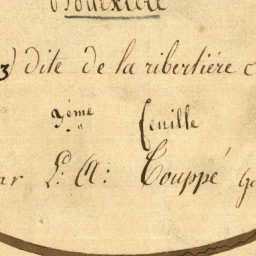 3) dite de la ribertiére
3ème feuille
P: A: Couppé